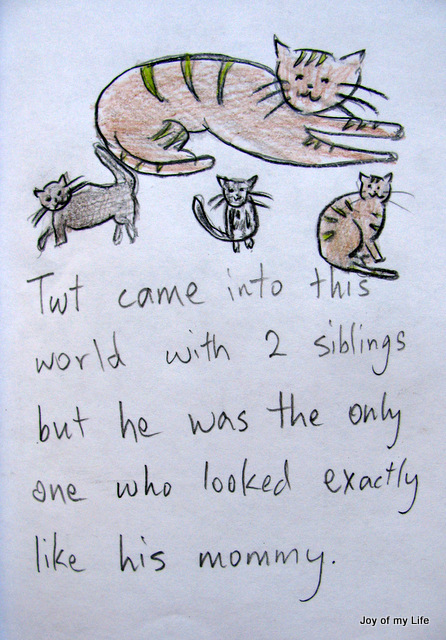 Twt came into this
world with 2 siblings
but he was the only
one who looked exactly
like his mommy.
Joy of my Life